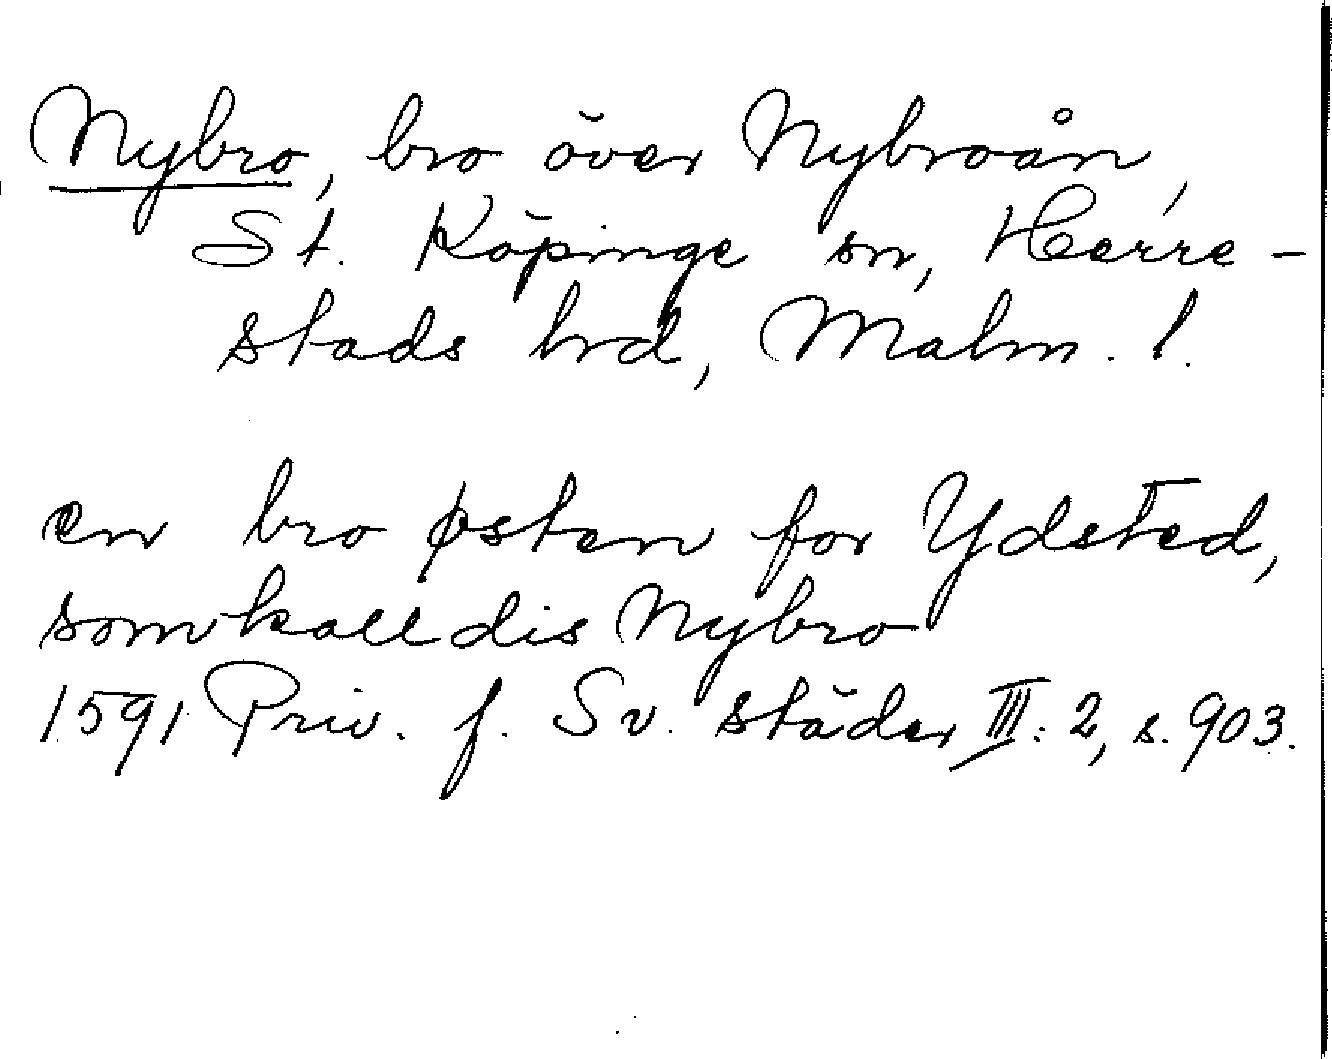 Nybro, bro över Nybroån,
St. Köpinge sn, Herre-
stads hrd, Malm. l.
en bro østen for Ydsted,
som kalldis Nybro
1591 Priv. f. Sv. städer III: 2, s. 903.